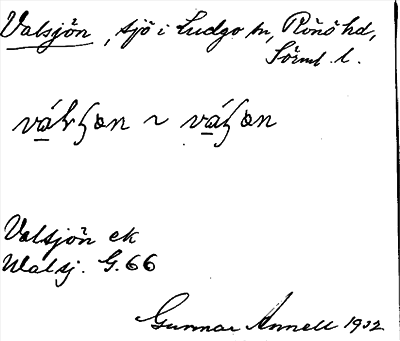 Valsjön, sjö i Ludgo sn, Rönö hd,
Sörml. l.
Valsjön ek
Walsj. G. 66
Gunnar Annell 1932